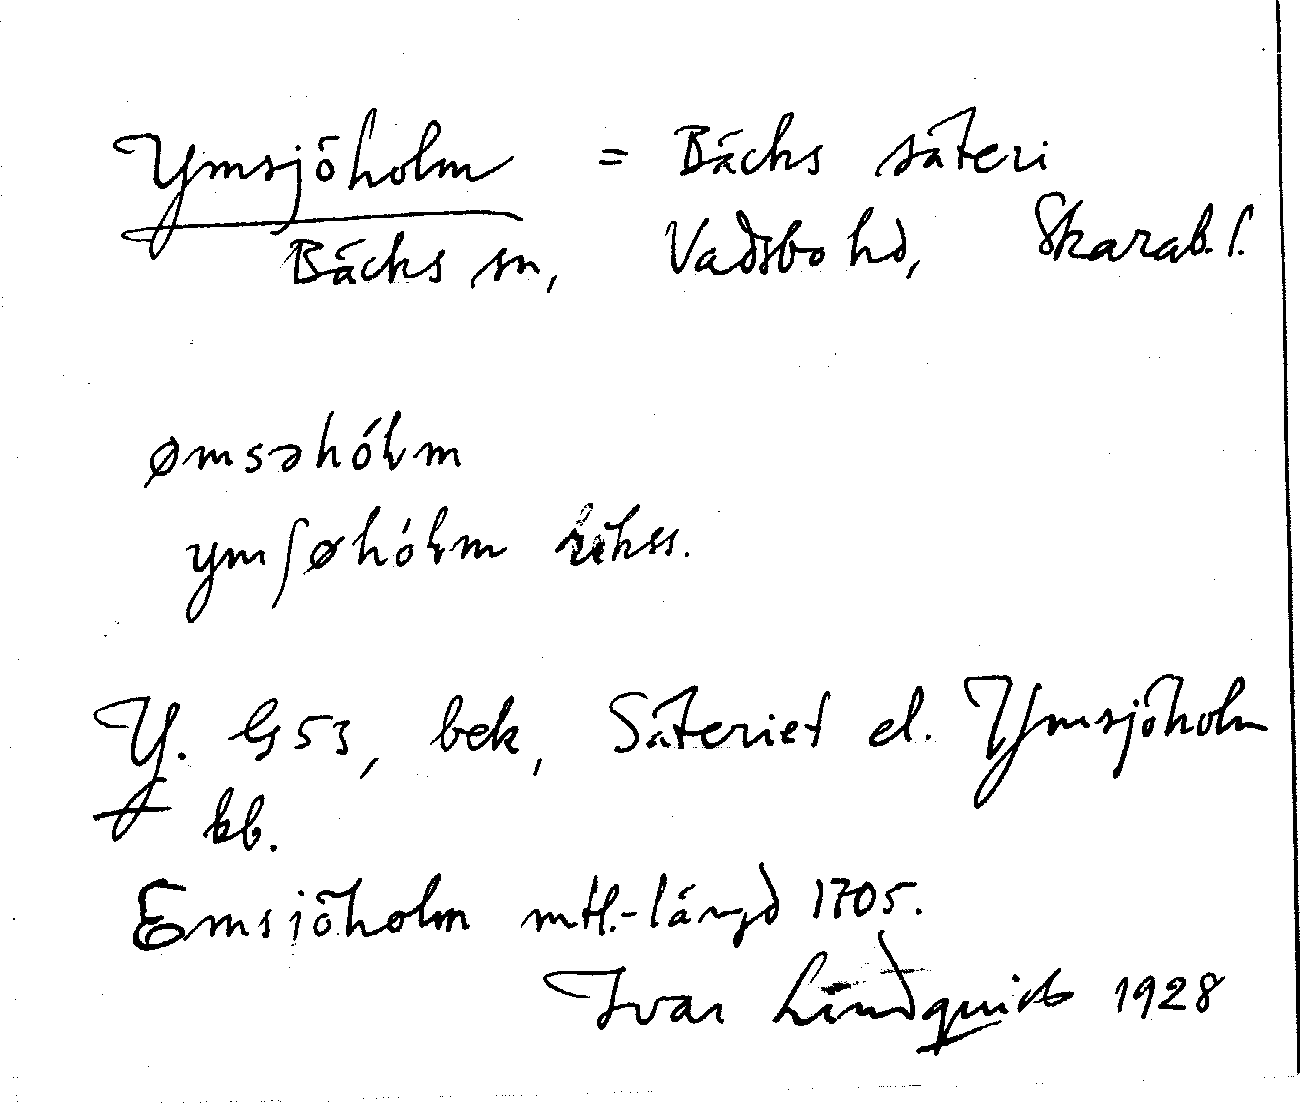 Ymsjöholm = Bäcks säteri
Bäcks sn, Vadsbo hd, Skarab. l.
ømsəhólm
ymʃøhólm
Y. G53, bek, Säteriet el. Ymsjöholm
kb.
Emsjöholm mtl.-längd 1705.
Ivar Lindquist 1928